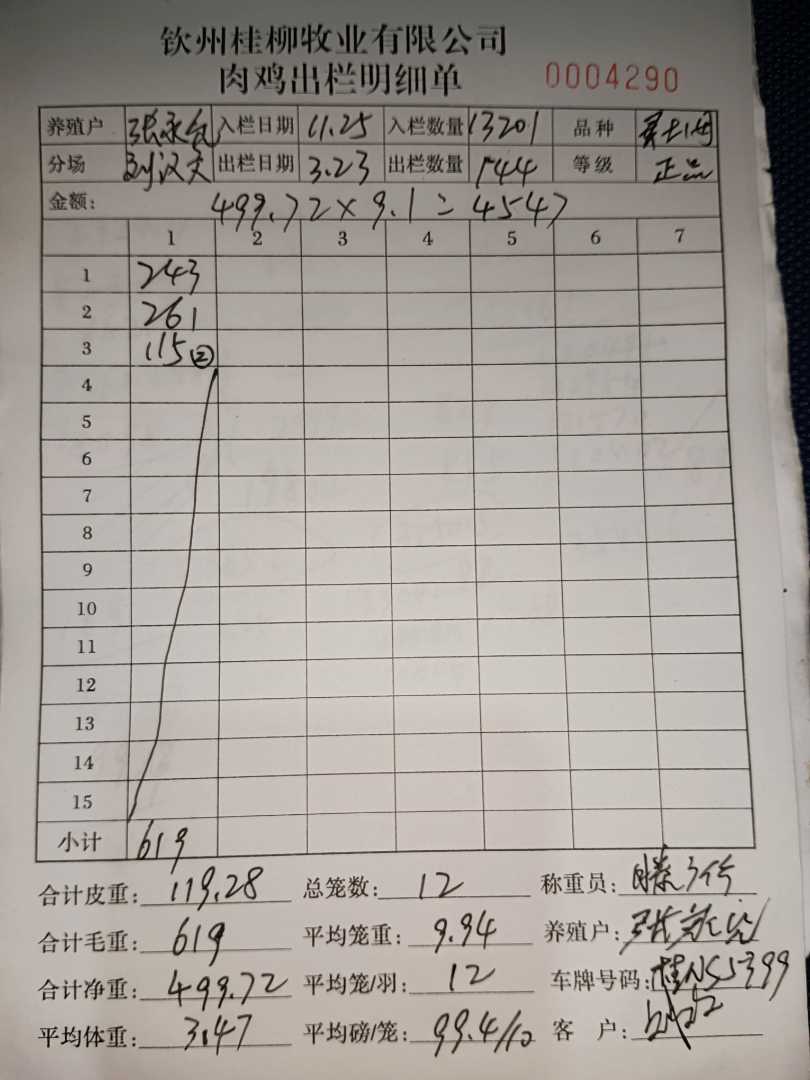 钦州桂柳牧业有限公司
肉鸡出栏明细单 0004290
养殖户 入栏日期 11.25 入栏数量 13201 品种
分场 刘汉文 出栏日期 3.23 出栏数量 144 等级 正品
金额: 499.72×9.1=4547
1 2 3 4 5 6 7
1 243
2 261
3 115②
4
5
6
7
8
9
10
11
12
13
14
15
小计 619
合计皮重: 119.28 总笼数: 12 称重员:
合计毛重: 619 平均笼重: 9.94 养殖户:
合计净重: 499.72 平均笼/羽: 12 车牌号码: 桂NS5399
平均体重: 3.47 平均磅/笼: 99.4/10 客户: